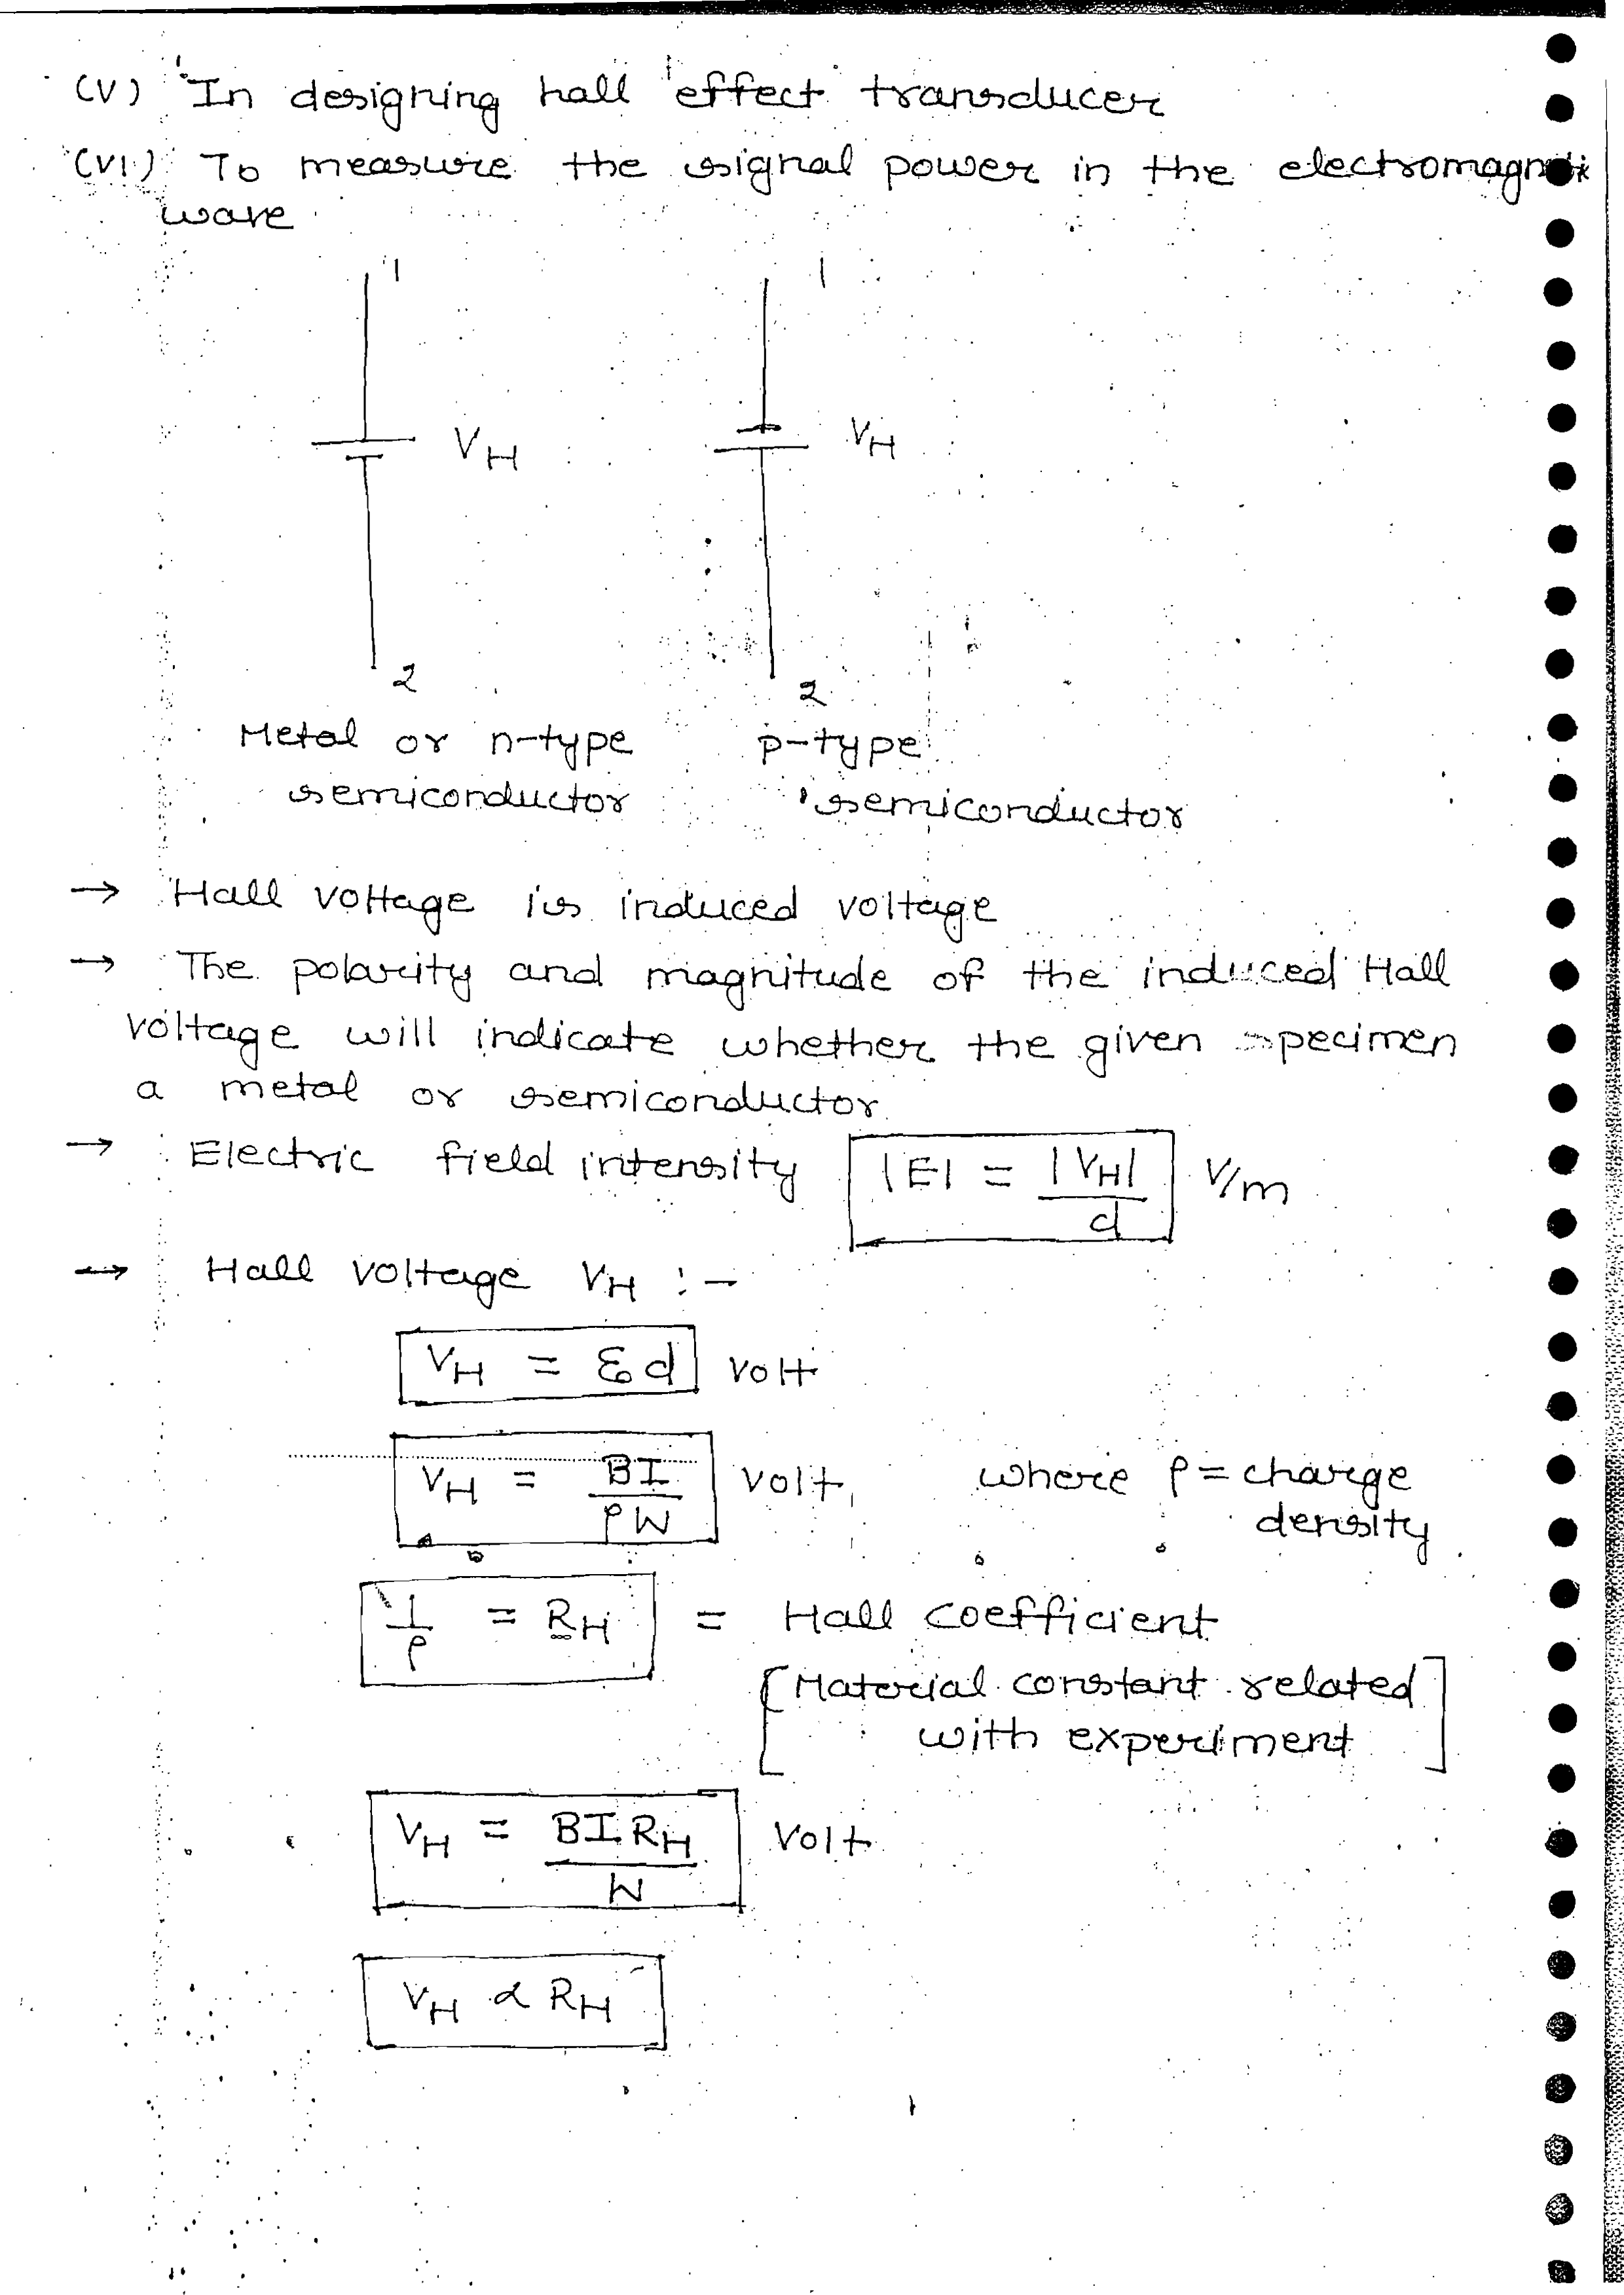 (V) In designing hall effect transducer
(VI) To measure the signal power in the electromagnetic
wave
1 1
VH VH
2 2
Metal or n-type p-type
semiconductor semiconductor
→ Hall voltage is induced voltage
→ The polarity and magnitude of the induced Hall
voltage will indicate whether the given specimen
a metal or semiconductor
→ Electric field intensity |E| = |VH| / d V/m
→ Hall voltage VH :-
VH = Ɛd Volt
VH = BI / ρW Volt, where ρ = charge
density
1/ρ = RH = Hall coefficient
[Material constant related
with experiment]
VH = BI RH / W Volt
VH α RH